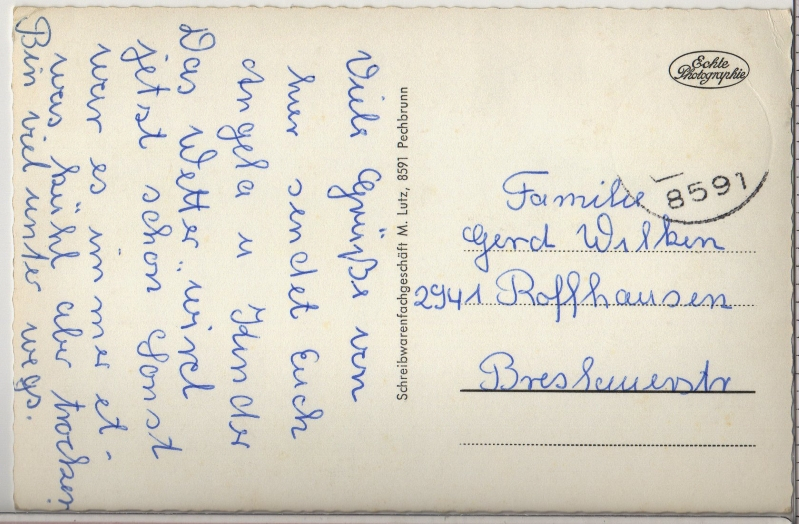 Viele Grüße von
hier sendet Euch
Angela u Kinder
Das Wetter wird
jetzt schon Sonst
war es immer et-
was kühl aber trocken
Bin viel unter wegs.
Schreibwarenfachgeschäft M. Lutz, 8591 Pechbrunn
Echte
Photographie
8591
Familie
Gerd Wilken
2941 Roffhausen
Breslauerstr